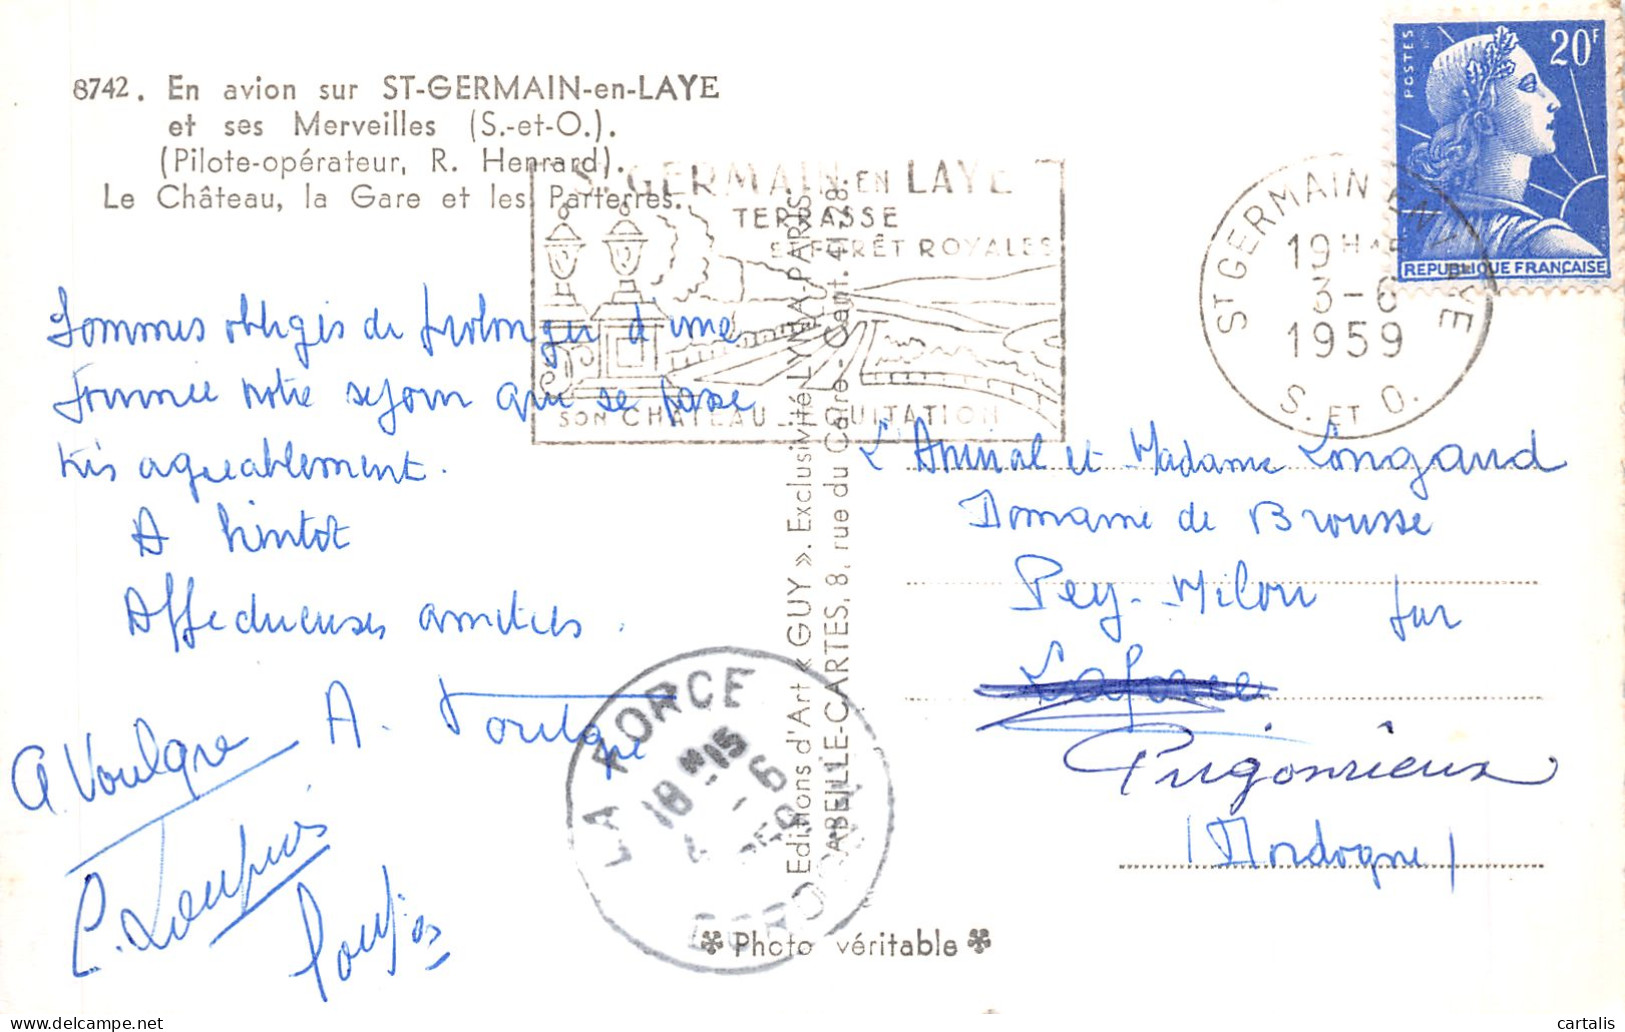 8742. En avion sur ST-GERMAIN-en-LAYE
et ses Merveilles (S.-et-O.).
(Pilote-opérateur, R. Henrard).
Le Château, la Gare et les Parterres.
ST GERMAIN EN LAYE
TERRASSE
ET FORÊT ROYALES
SON CHATEAU _ EQUITATION
ST GERMAIN EN LAYE
19H
3-6
1959
S. ET O.
POSTES
20F
REPUBLIQUE FRANÇAISE
Sommes obligés de prolonger d'une
journée notre séjour qui se passe
très agréablement.
A bientôt
Affectueuses amitiés.
A. Voulgre
Editions d'Art «GUY». Exclusivité LYNA-PARIS
ABEILLE-CARTES, 8, rue du Caire - Cent. 41-28.
L'Amiral et Madame Longaud
Domaine de Brousse
Pey-Milou sur
Laforce
Prigonrieux
(Dordogne)
LA FORCE
18H15
-6
DORDOGNE
Photo véritable
cartalis
www.delcampe.net